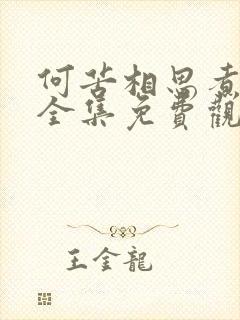 何苦相思煮
全集免費觀
王金龍